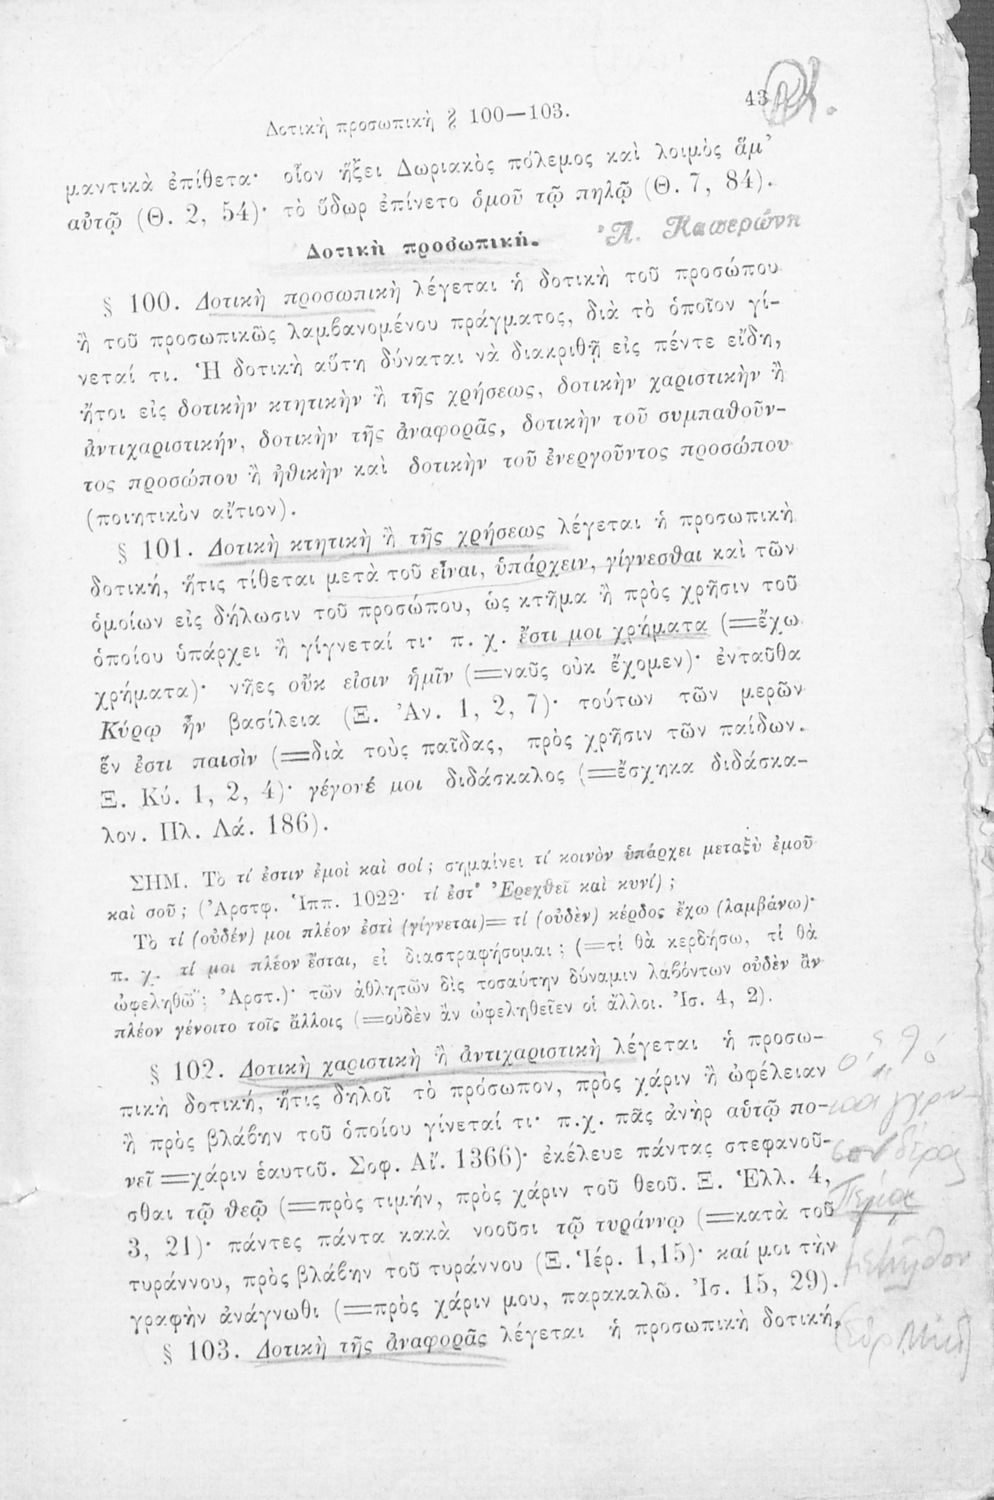 Δοτικὴ προσωπικὴ § 100—103.
43
μαντικὰ ἐπίθετα· οἷον ἥξει Δωριακὸς πόλεμος καὶ λοιμὸς ἅμ’
αὐτῷ (Θ. 2, 54)· τὸ ὕδωρ ἐπίνετο ὁμοῦ τῷ πηλῷ (Θ. 7, 84).
Δοτικὴ προσωπική.
Ἀ. Καπερώνη
§ 100. Δοτικὴ προσωπικὴ λέγεται ἡ δοτικὴ τοῦ προσώπου
ἢ τοῦ προσωπικῶς λαμβανομένου πράγματος, διὰ τὸ ὁποῖον γί-
νεταί τι. Ἡ δοτικὴ αὕτη δύναται νὰ διακριθῇ εἰς πέντε εἴδη,
ἤτοι εἰς δοτικὴν κτητικὴν ἢ τῆς χρήσεως, δοτικὴν χαριστικὴν ἢ
ἀντιχαριστικήν, δοτικὴν τῆς ἀναφορᾶς, δοτικὴν τοῦ συμπαθοῦν-
τος προσώπου ἢ ἠθικὴν καὶ δοτικὴν τοῦ ἐνεργοῦντος προσώπου
(ποιητικὸν αἴτιον).
§ 101. Δοτικὴ κτητικὴ ἢ τῆς χρήσεως λέγεται ἡ προσωπικὴ
δοτική, ἥτις τίθεται μετὰ τοῦ εἶναι, ὑπάρχειν, γίγνεσθαι καὶ τῶν
ὁμοίων εἰς δήλωσιν τοῦ προσώπου, ὡς κτῆμα ἢ πρὸς χρῆσιν τοῦ
ὁποίου ὑπάρχει ἢ γίγνεταί τι· π. χ. ἔστι μοι χρήματα (=ἔχω
χρήματα)· νῆες οὔκ εἰσιν ἡμῖν (=ναῦς οὐκ ἔχομεν)· ἐνταῦθα
Κύρῳ ἦν βασίλεια (Ξ. Ἀν. 1, 2, 7)· τούτων τῶν μερῶν
ἕν ἐστι παισὶν (=διὰ τοὺς παῖδας, πρὸς χρῆσιν τῶν παίδων.
Ξ. Κύ. 1, 2, 4)· γέγονέ μοι διδάσκαλος (=ἔσχηκα διδάσκα-
λον. Πλ. Λά. 186).
ΣΗΜ. Τὸ τί ἐστιν ἐμοὶ καὶ σοί; σημαίνει τί κοινὸν ὑπάρχει μεταξὺ ἐμοῦ
καὶ σοῦ; (Ἀρστφ. Ἱππ. 1022· τί ἐστ’ Ἐρεχθεῖ καὶ κυνί);
Τὸ τί (οὐδέν) μοι πλέον ἐστὶ (γίγνεται)= τί (οὐδὲν) κέρδος ἔχω (λαμβάνω)·
π. χ. τί μοι πλέον ἔσται, εἰ διαστραφήσομαι; (=τί θὰ κερδήσω, τί θὰ
ὠφεληθῶ; Ἀρστ.)· τῶν ἀθλητῶν δὶς τοσαύτην δύναμιν λαβόντων οὐδὲν ἂν
πλέον γένοιτο τοῖς ἄλλοις (=οὐδὲν ἂν ὠφεληθεῖεν οἱ ἄλλοι. Ἰσ. 4, 2).
§ 102. Δοτικὴ χαριστικὴ ἢ ἀντιχαριστικὴ λέγεται ἡ προσω-
πικὴ δοτική, ἥτις δηλοῖ τὸ πρόσωπον, πρὸς χάριν ἢ ὠφέλειαν
ἢ πρὸς βλάβην τοῦ ὁποίου γίνεταί τι· π.χ. πᾶς ἀνὴρ αὑτῷ πο-
νεῖ =χάριν ἑαυτοῦ. Σοφ. Αἴ. 1366)· ἐκέλευε πάντας στεφανοῦ-
σθαι τῷ θεῷ (=πρὸς τιμήν, πρὸς χάριν τοῦ θεοῦ. Ξ. Ἑλλ. 4,
3, 21)· πάντες πάντα κακὰ νοοῦσι τῷ τυράννῳ (=κατὰ τοῦ
τυράννου, πρὸς βλάβην τοῦ τυράννου (Ξ. Ἱέρ. 1,15)· καί μοι τὴν
γραφὴν ἀνάγνωθι (=πρὸς χάριν μου, παρακαλῶ. Ἰσ. 15, 29).
§ 103. Δοτικὴ τῆς ἀναφορᾶς λέγεται ἡ προσωπικὴ δοτική,